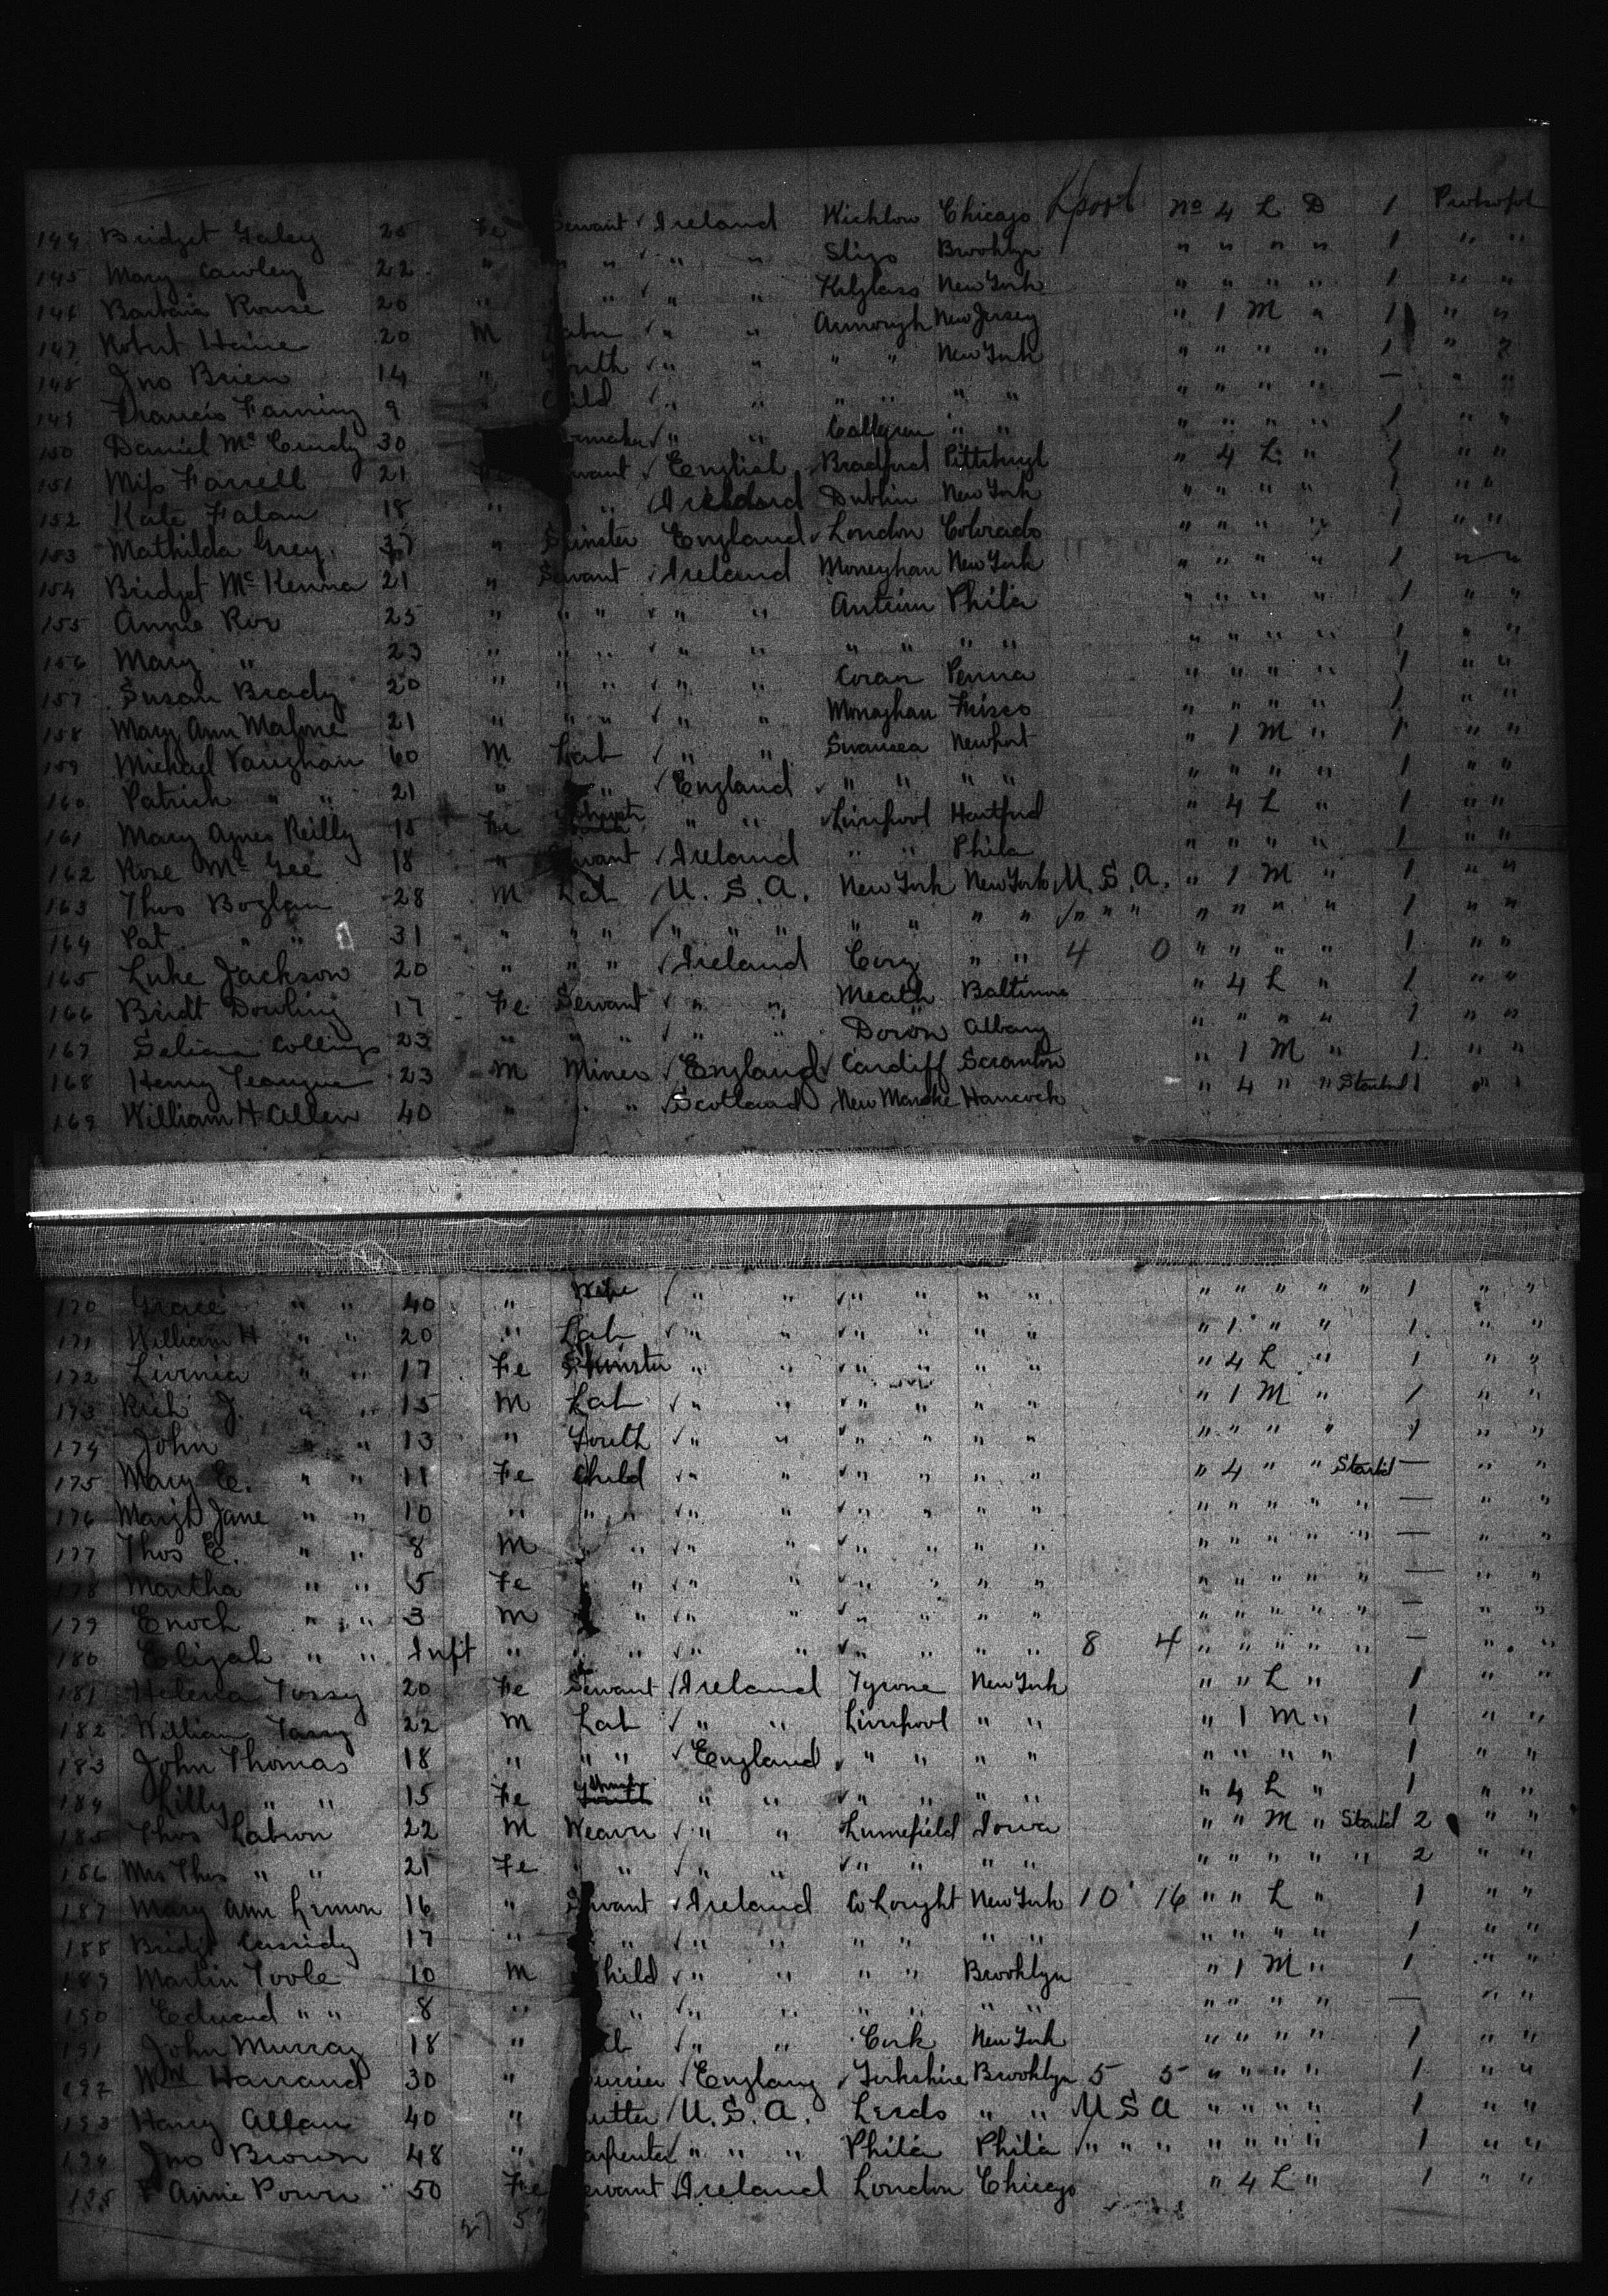 144 Bridget Galey 25 Fe Servant √ Ireland Wicklow Chicago Lpool No 4 L D 1 Protsofot
145 Mary Cawley 22 " " " √ " " Sligo Brooklyn " " " " 1 " "
146 Barbara Rouse 20 " " √ " " Kilglass New York " " " " 1 " "
147 Robert Haire 20 M Labr √ " " Armough New Jersey " 1 M " 1 " "
148 Jno Brien 14 " outh √ " " " " New York " " " " 1 "
149 Francis Fanning 9 " hild √ " " " " " " " " " " — " "
150 Daniel Mc Curdy 30 rmaker √ " " " " " " " " 1 " "
151 Miss Farrell 21 Fe rvant √ English Bradford Pittsburgh " 4 L " 1 " "
152 Kate Falan 18 " " √ Ireland Dublin New York " " " " 1 " "
153 Mathilda Grey 37 " Spinster England √ London Colorado " " " " 1 " "
154 Bridget Mc Kenna 21 " Servant √ Ireland Moneghan New York " " " " 1 " "
155 Annie Rox 25 " " " √ " " Antrim Phila " " " " 1 " "
156 Mary " 23 " " " √ " " " " " " " " " " 1 " "
157 Susan Brady 20 " " " √ " " Penna " " " " 1 " "
158 Mary Ann Malone 21 " " " √ " " Monaghan Frisco " " " " 1 " "
159 Michael Vaughan 60 M Lab √ " " Swansea Newport " 1 M " 1 " "
160 Patrick " " 21 " " √ England √ " " " " " " " " 1 " "
161 Mary Agnes Reilly 15 Fe " " √ Liverpool Hartford " 4 L " 1 " "
162 Rose Mc Gee 18 " Servant √ Ireland " " Phila " " " " 1 " "
163 Thos Boglan 28 M Lab √ U. S. A. New York New York U. S. A. " 1 M " 1 " "
164 Pat " " 31 " " " √ " " " " " " " √ " " " " " " " 1 " "
165 Luke Jackson 20 " " " √ Ireland " " 4 0 " " " " 1 " "
166 Bridt Dowling 17 Fe Servant √ " " Meath Baltimore " 4 L " 1 " "
167 Selina Collings 23 " " " √ " " Albany " " " " 1 " "
168 Henry Teangue 23 M Miner √ England √ Cardiff Scranton " 1 M " 1 " "
169 William H Allen 40 " " √ Scotland √ New Hancock " 4 " " Starbd 1 " "
170 Grace " " 40 " Wife √ " " √ " " " " " " " " " 1 " "
171 William H " " 20 " Lab √ " " √ " " " " " 1 " " 1 " "
172 Livinia " " 17 Fe Spinster " " √ " " " " " 4 L " 1 " "
173 Rich J. " " 15 M Lab √ " " √ " " " " " 1 M " 1 " "
174 John " " 13 " Youth √ " " √ " " " " " " " " 1 " "
175 Mary E. " " 11 Fe Child √ " " √ " " " " " 4 " " Starbd — " "
176 Margt Jane " " 10 " " " √ " " √ " " " " " " " " " — " "
177 Thos E. " " 8 M " " √ " " √ " " " " " " " " " — " "
178 Martha " " 5 Fe " " √ " " √ " " " " " " " " " — " "
179 Enoch " " 3 M " √ " " √ " " " " " " " " " — " "
180 Elijah " " Inft " " " √ " " √ " " " " 8 4 " " " " " — " "
181 Helena Tossy 20 Fe Servant √ Ireland Tyrone New York " " L " 1 " "
182 William 22 M Lab √ " " Liverpool " " " 1 M " 1 " "
183 John Thomas 18 " " " √ England √ " " " " " " " " 1 " "
184 Lilly " " 15 Fe " " √ " " " " " 4 L " 1 " "
185 Thos 22 M Weaver √ " " Iowa " " M " Starbd 2 " "
186 Mrs Thos " " 21 Fe " " √ " " √ " " " " " " " " " 2 " "
187 Mary Ann Lennon 16 " Servant √ Ireland Co Lought New York 10 16 " " L " 1 " "
188 Bridgt Cassidy 17 " " √ " " " " " " " " " " 1 " "
189 Martin Toole 10 M hild √ " " " " Brooklyn " 1 M " 1 " "
190 Edward " " 8 " " √ " " " " " " " " " " — " "
191 John Murray 18 " √ " " Cork New York " " " " 1 " "
192 Wm Harrand 30 " urrier √ England √ Yorkshire Brooklyn 5 5 " " " " 1 " "
193 Harry Allan 40 " utter √ U. S. A. Leeds " " U S A " " " " 1 " "
194 Jno Brown 48 " arpenter √ " " " Phila Phila √ " " " " " " " 1 " "
195 Annie Power 50 Fe ervant √ Ireland London Chicago " 4 L " 1 " "